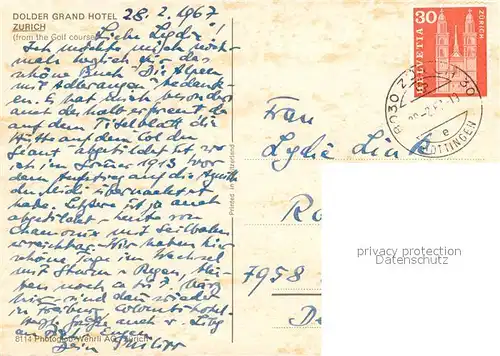 DOLDER GRAND HOTEL
ZURICH
(from the Golf course)
28.2.1967
Liebe Lydie!
Ich möchte mich noch-
mals herzlich für das
schöne Buch "Die Alpen
mit Adleraugen" bedan-
ken. Es hat mich besonders
auch deshalb erfreut da
auf dem Titelblatt die
Hütte auf dem Col du
Géant abgebildet ist wo
ich im Sommer 1913 vor
dem Aufstieg auf die Aiguille
du Midi übernachtet
habe. Letztere ist ja auch
abgebildet - heute von
Chamonix mit Seilbahn
erreichbar. Wir haben hier
schöne Tage im Wechsel
mit Sturm u. Regen,
noch bis 7. März
hier - sind dann wieder
in Freiburg Colombi Hotel.
Grüße auch v. Litz
Dein Philipp
8114 Photoglob-Wehrli AG, Zürich
Printed in Switzerland
30
HELVETIA
ZÜRICH
8030 ZÜRICH 30
e
HOTTINGEN
Frau
Lydie Link
7958
privacy protection
Datenschutz